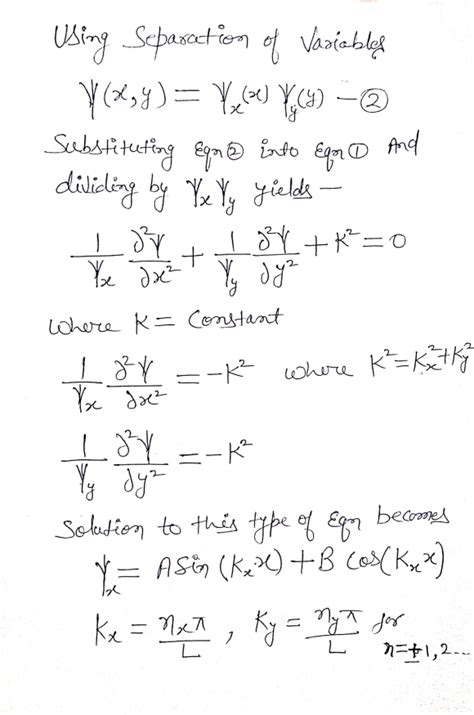 Using Separation of Variables
Ψ(x,y) = Ψₓ(x) Ψ_y(y) — ②
Substituting Eqn ② into Eqn ① And
dividing by Ψₓ Ψ_y yields —
1/Ψₓ ∂²Ψ/∂x² + 1/Ψ_y ∂²Ψ/∂y² + K² = 0
where K = Constant
1/Ψₓ ∂²Ψ/∂x² = -K² where K² = Kₓ² + K_y²
1/Ψ_y ∂²Ψ/∂y² = -K²
Solution to this type of Eqn becomes
Ψₓ = A Sin (Kₓx) + B cos(Kₓx)
Kₓ = nₓπ/L , K_y = n_yπ/L for
n = ±1, 2 ...